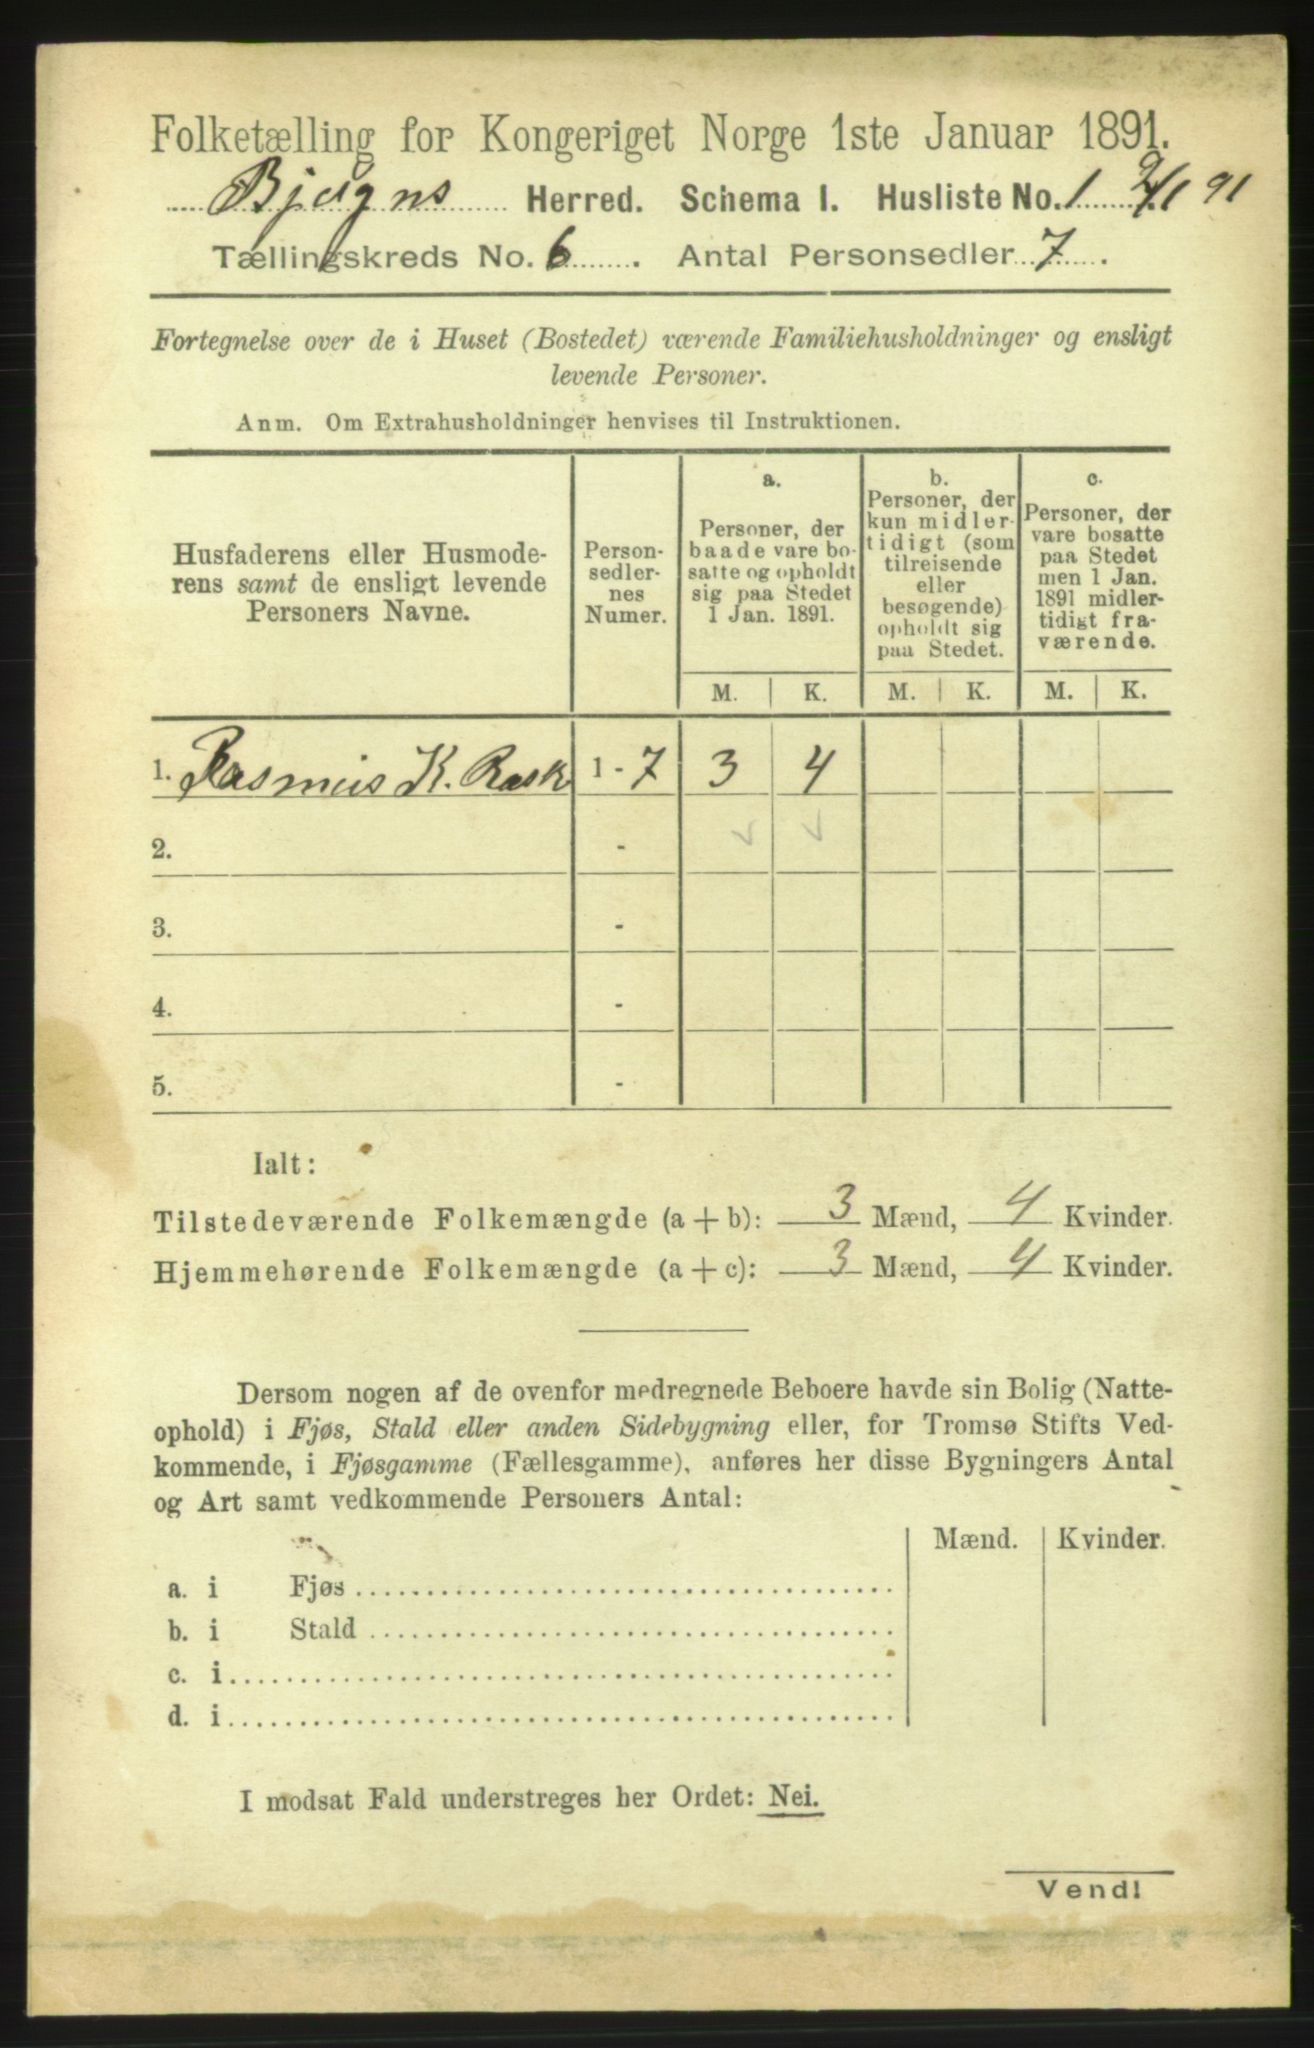 Folketælling for Kongeriget Norge 1ste Januar 1891.
Bjugns Herred. Schema I. Husliste No. 1 2/1 91
Tællingskreds No. 6. Antal Personsedler 7.
Fortegnelse over de i Huset (Bostedet) værende Familiehusholdninger og ensligt
levende Personer.
Anm. Om Extrahusholdninger henvises til Instruktionen.
Husfaderens eller Husmode-
rens samt de ensligt levende
Personers Navne.
Person-
sedler-
nes
Numer.
a.
Personer, der
baade vare bo-
satte og opholdt
sig paa Stedet
1 Jan. 1891.
b.
Personer, der
kun midler-
tidigt (som
tilreisende
eller
besøgende)
opholdt sig
paa Stedet.
c.
Personer, der
vare bosatte
paa Stedet
men 1 Jan.
1891 midler-
tidigt fra-
værende.
M. K. M. K. M. K.
1. Rasmus K. Rask 1 - 7 3 4
2. -
3. -
4. -
5. -
Ialt:
Tilstedeværende Folkemængde (a + b): 3 Mænd, 4 Kvinder.
Hjemmehørende Folkemængde (a + c): 3 Mænd, 4 Kvinder.
Dersom nogen af de ovenfor medregnede Beboere havde sin Bolig (Natte-
ophold) i Fjøs, Stald eller anden Sidebygning eller, for Tromsø Stifts Ved-
kommende, i Fjøsgamme (Fællesgamme), anføres her disse Bygningers Antal
og Art samt vedkommende Personers Antal:
Mænd. Kvinder.
a. i Fjøs
b. i Stald
c. i
d. i
I modsat Fald understreges her Ordet: Nei.
Vend!